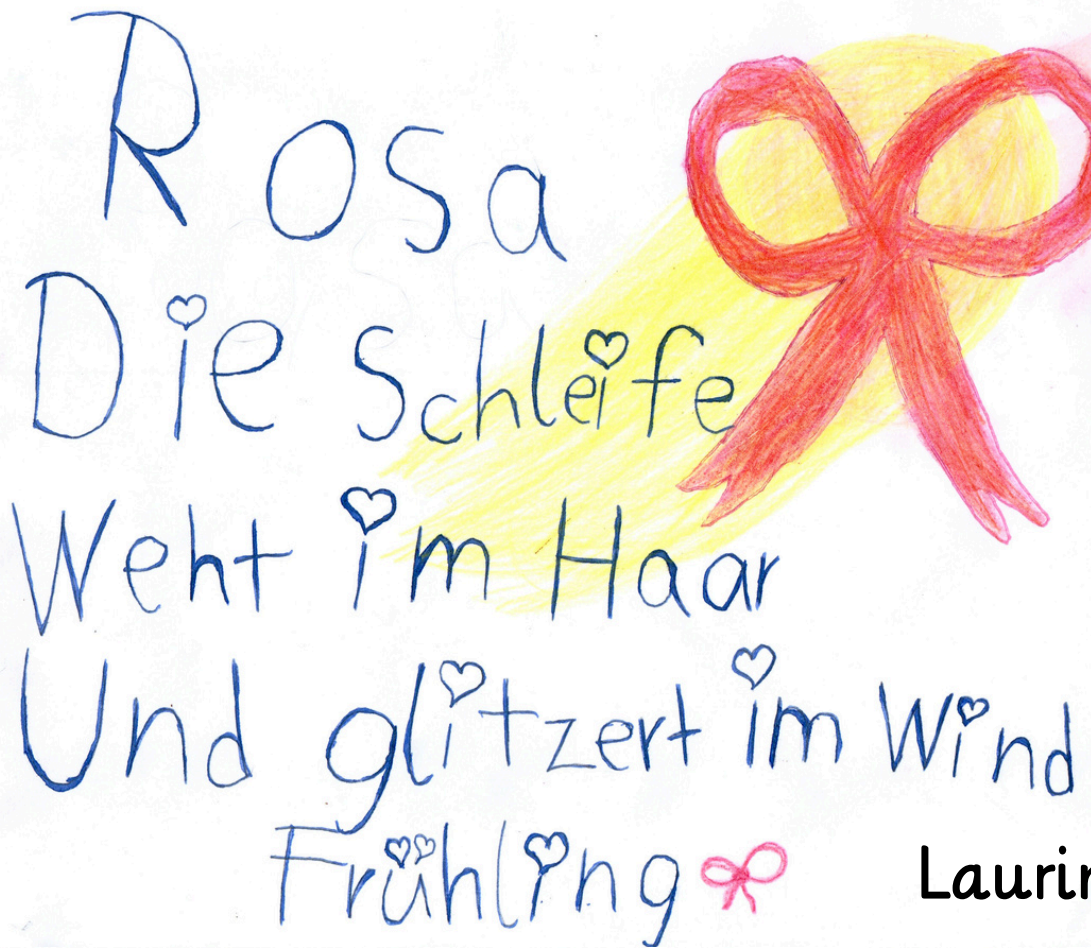 Rosa
Die Schleife
Weht im Haar
Und glitzert im Wind
Frühling